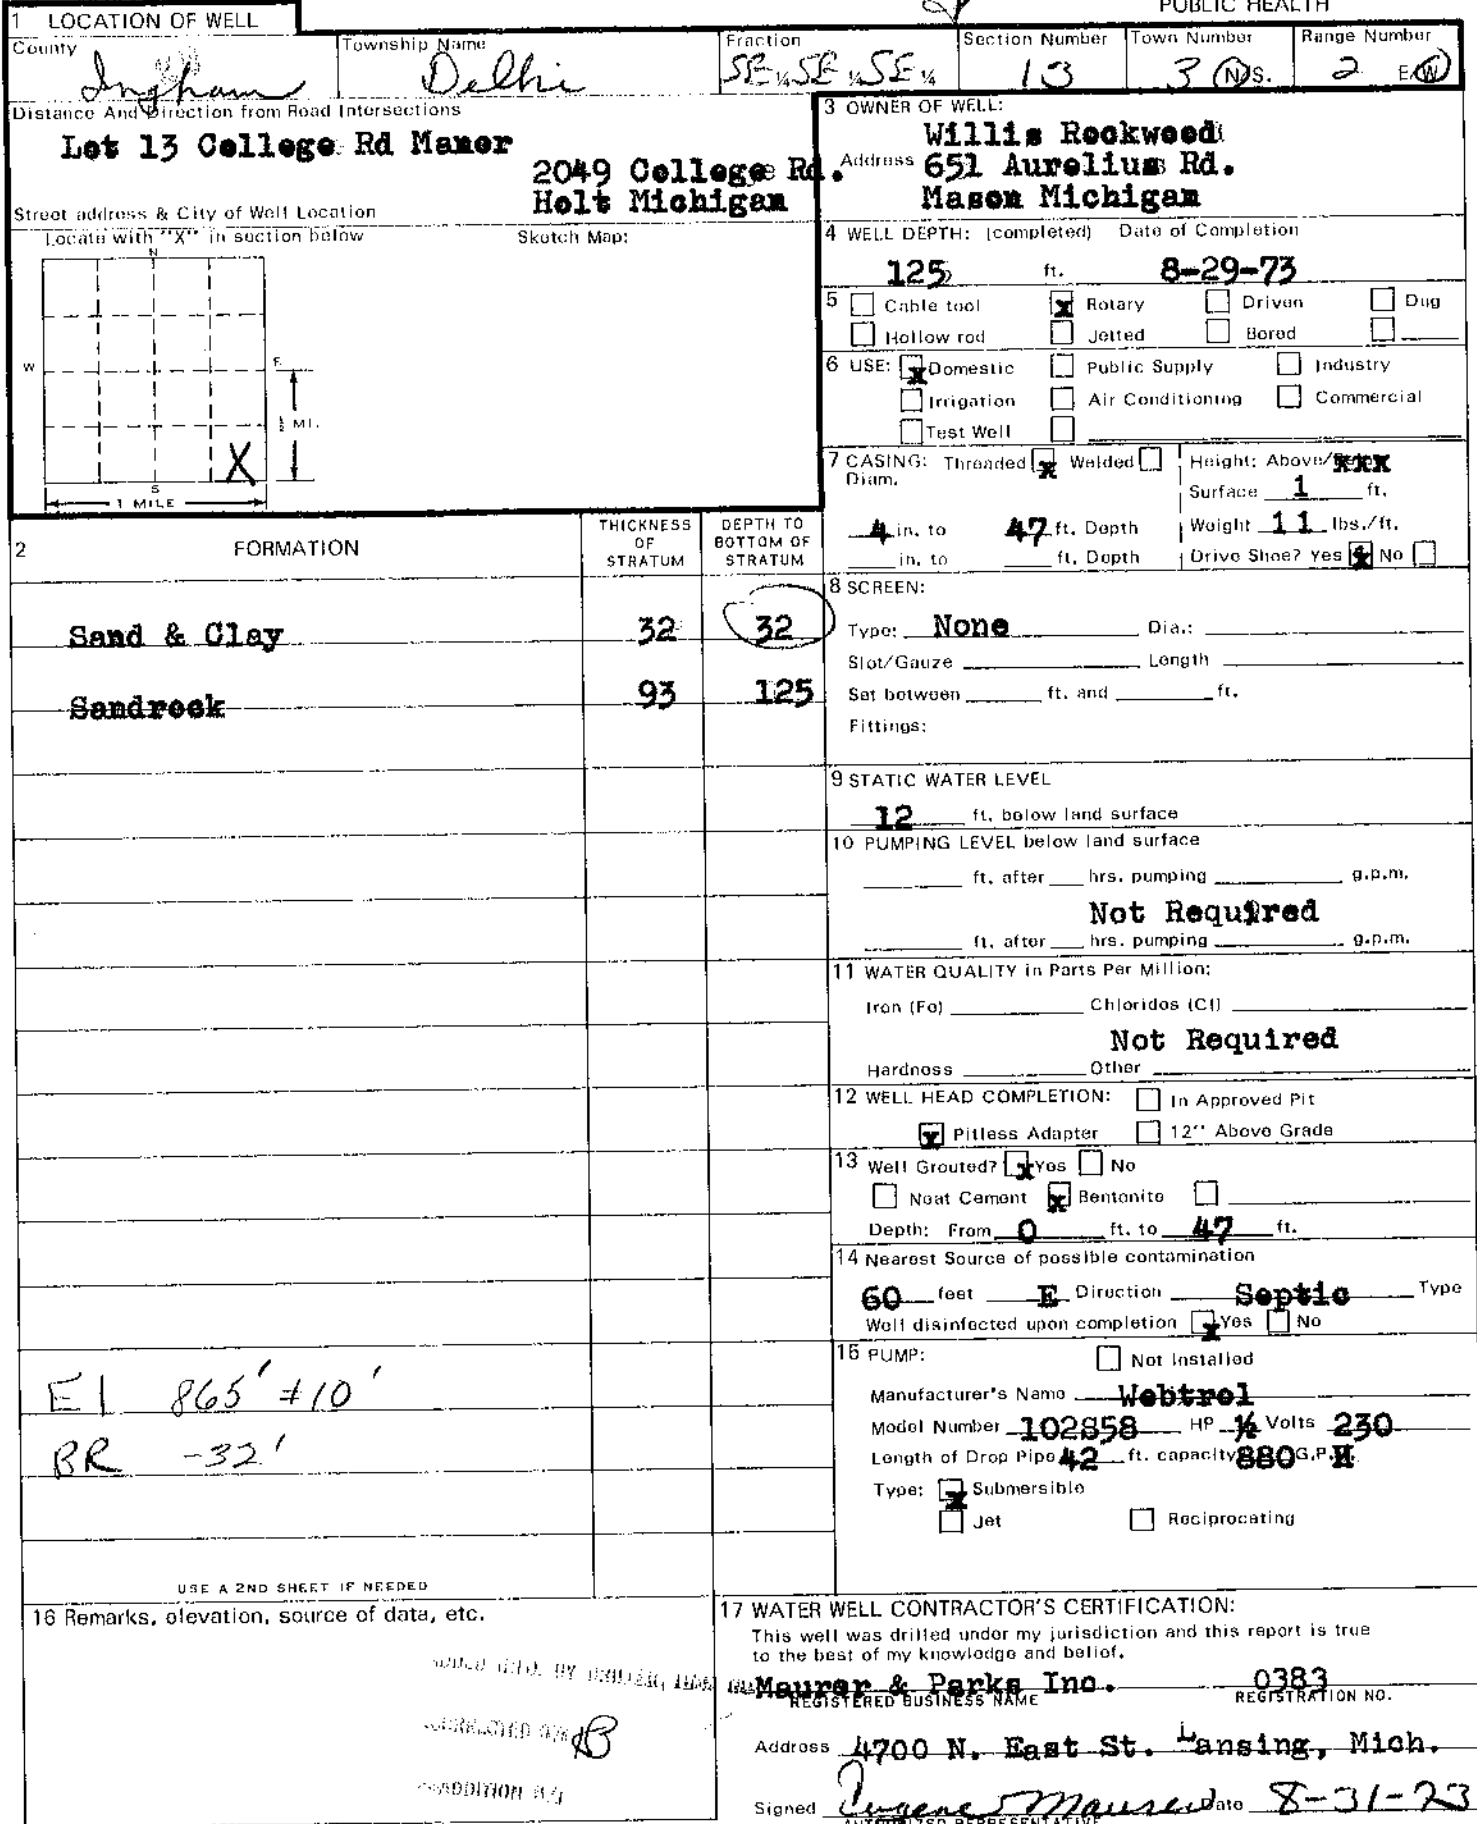 PUBLIC HEALTH
1 LOCATION OF WELL
County Ingham
Township Name Delhi
Fraction SE ¼ SE ¼ SE ¼
Section Number 13
Town Number 3 N/S.
Range Number 2 E/W
Distance And Direction from Road Intersections
Lot 13 College Rd Manor
2049 College Rd.
Holt Michigan
Street address & City of Well Location
Locate with "X" in section below
Sketch Map:
N
W
E
X
½ MI.
S
1 MILE
3 OWNER OF WELL:
Willis Rockwood
Address 651 Aurelius Rd.
Mason Michigan
4 WELL DEPTH: (completed) Date of Completion
125 ft. 8-29-73
5 Cable tool x Rotary Driven Dug
Hollow rod Jetted Bored
6 USE: x Domestic Public Supply Industry
Irrigation Air Conditioning Commercial
Test Well
7 CASING: Threaded x Welded Height: Above/xxx
Diam.
Surface 1 ft.
4 in. to 47 ft. Depth Weight 11 lbs./ft.
in. to ft. Depth Drive Shoe? Yes x No
2 FORMATION
THICKNESS OF STRATUM
DEPTH TO BOTTOM OF STRATUM
Sand & Clay 32 32
Sandrock 93 125
El 865' ±10'
BR -32'
USE A 2ND SHEET IF NEEDED
8 SCREEN:
Type: None Dia.:
Slot/Gauze Length
Set between ft. and ft.
Fittings:
9 STATIC WATER LEVEL
12 ft. below land surface
10 PUMPING LEVEL below land surface
ft. after hrs. pumping g.p.m.
Not Required
ft. after hrs. pumping g.p.m.
11 WATER QUALITY in Parts Per Million:
Iron (Fe) Chlorides (Cl)
Not Required
Hardness Other
12 WELL HEAD COMPLETION: In Approved Pit
x Pitless Adapter 12" Above Grade
13 Well Grouted? x Yes No
Neat Cement x Bentonite
Depth: From 0 ft. to 47 ft.
14 Nearest Source of possible contamination
60 feet E Direction Septic Type
Well disinfected upon completion x Yes No
15 PUMP: Not Installed
Manufacturer's Name Webtrol
Model Number 102858 HP ½ Volts 230
Length of Drop Pipe 42 ft. capacity 880 G.P.H
Type: x Submersible
Jet Reciprocating
16 Remarks, elevation, source of data, etc.
CORRECTED BY
ADDITION BY
17 WATER WELL CONTRACTOR'S CERTIFICATION:
This well was drilled under my jurisdiction and this report is true
to the best of my knowledge and belief.
Maurer & Parks Inc. 0383
REGISTERED BUSINESS NAME REGISTRATION NO.
Address 4700 N. East St. Lansing, Mich.
Signed Eugene Maurer Date 8-31-73
AUTHORIZED REPRESENTATIVE